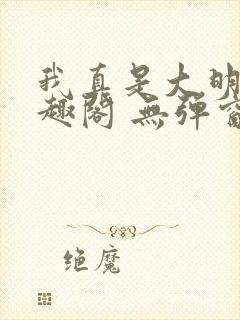 我真是大明
趣阁 無弹窗
绝魔